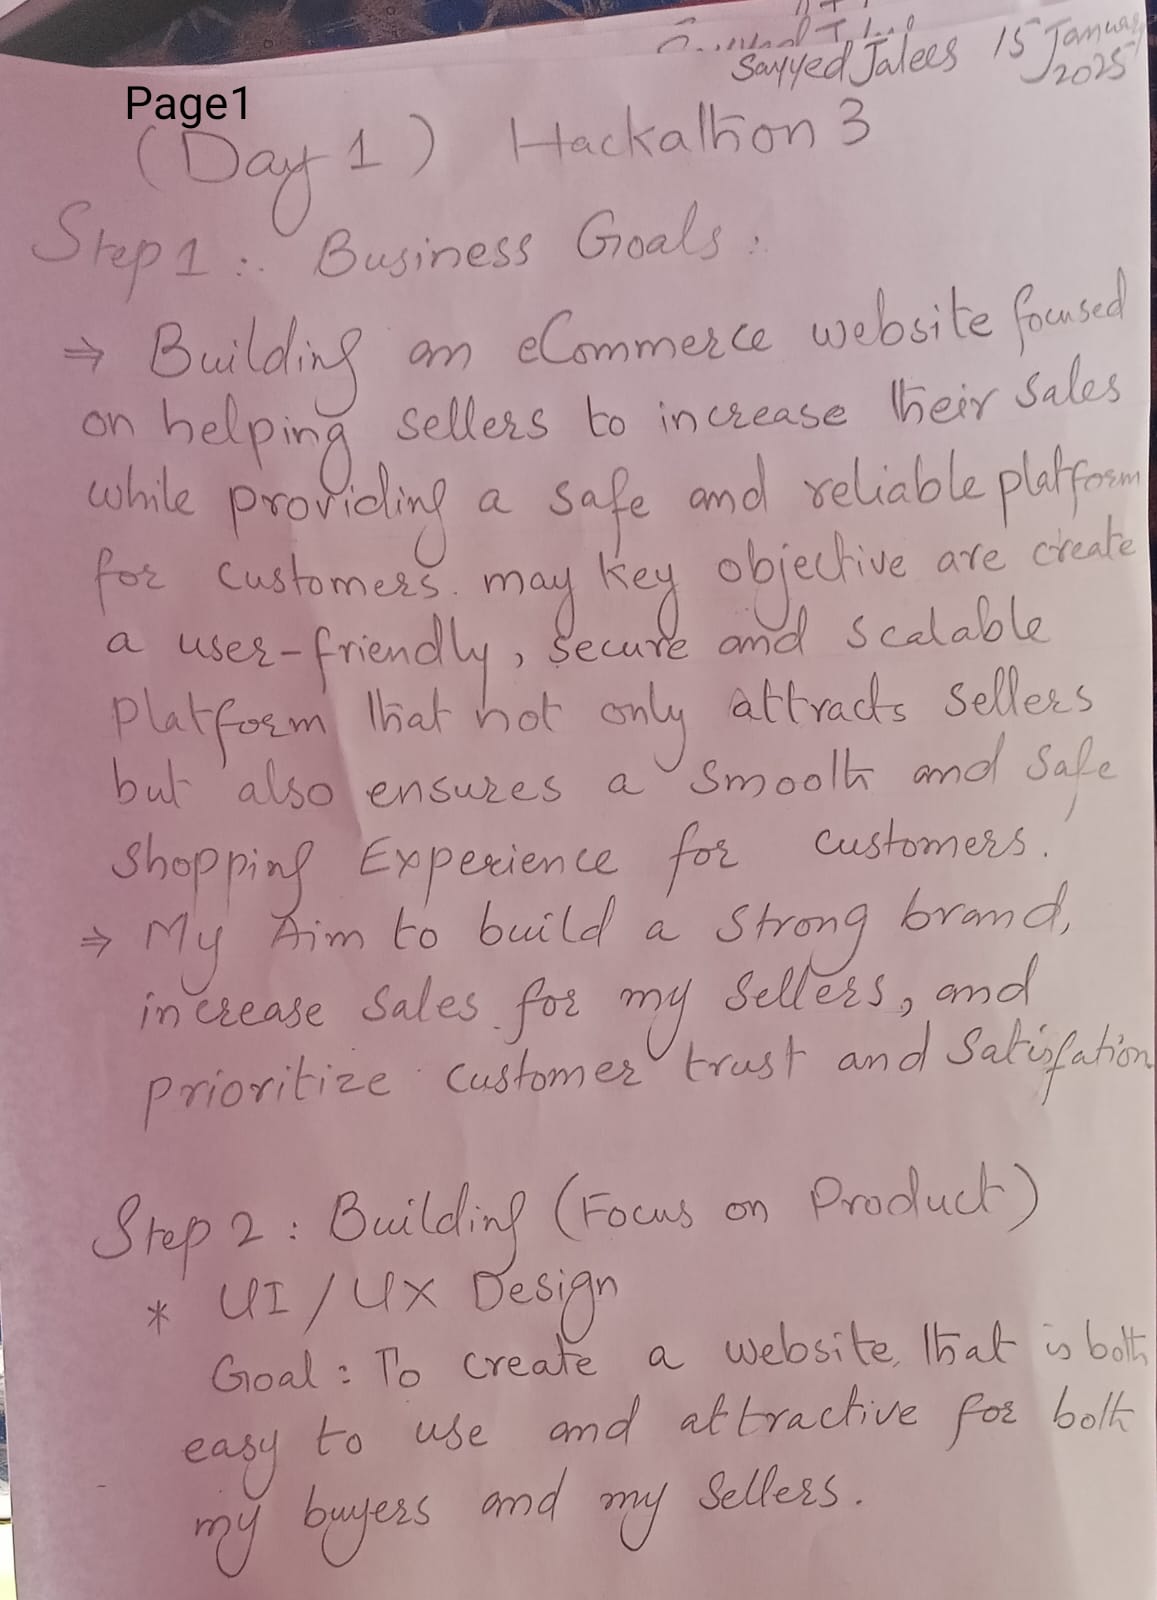 Sayyed Jalees 15 January
2025
Page1
(Day 1) Hackathon 3
Step 1 :. Business Goals :
⇒ Building an eCommerce website focused
on helping sellers to increase their sales
while providing a safe and reliable platform
for customers. may key objective are create
a user-friendly, secure and scalable
platform that not only attracts sellers
but also ensures a smooth and safe
shopping Experience for customers.
⇒ My Aim to build a strong brand,
increase sales for my sellers, and
prioritize customer trust and satisfation
Step 2 : Building (Focus on Product)
* UI / UX Design
Goal : To create a website that is both
easy to use and attractive for both
my buyers and my sellers.